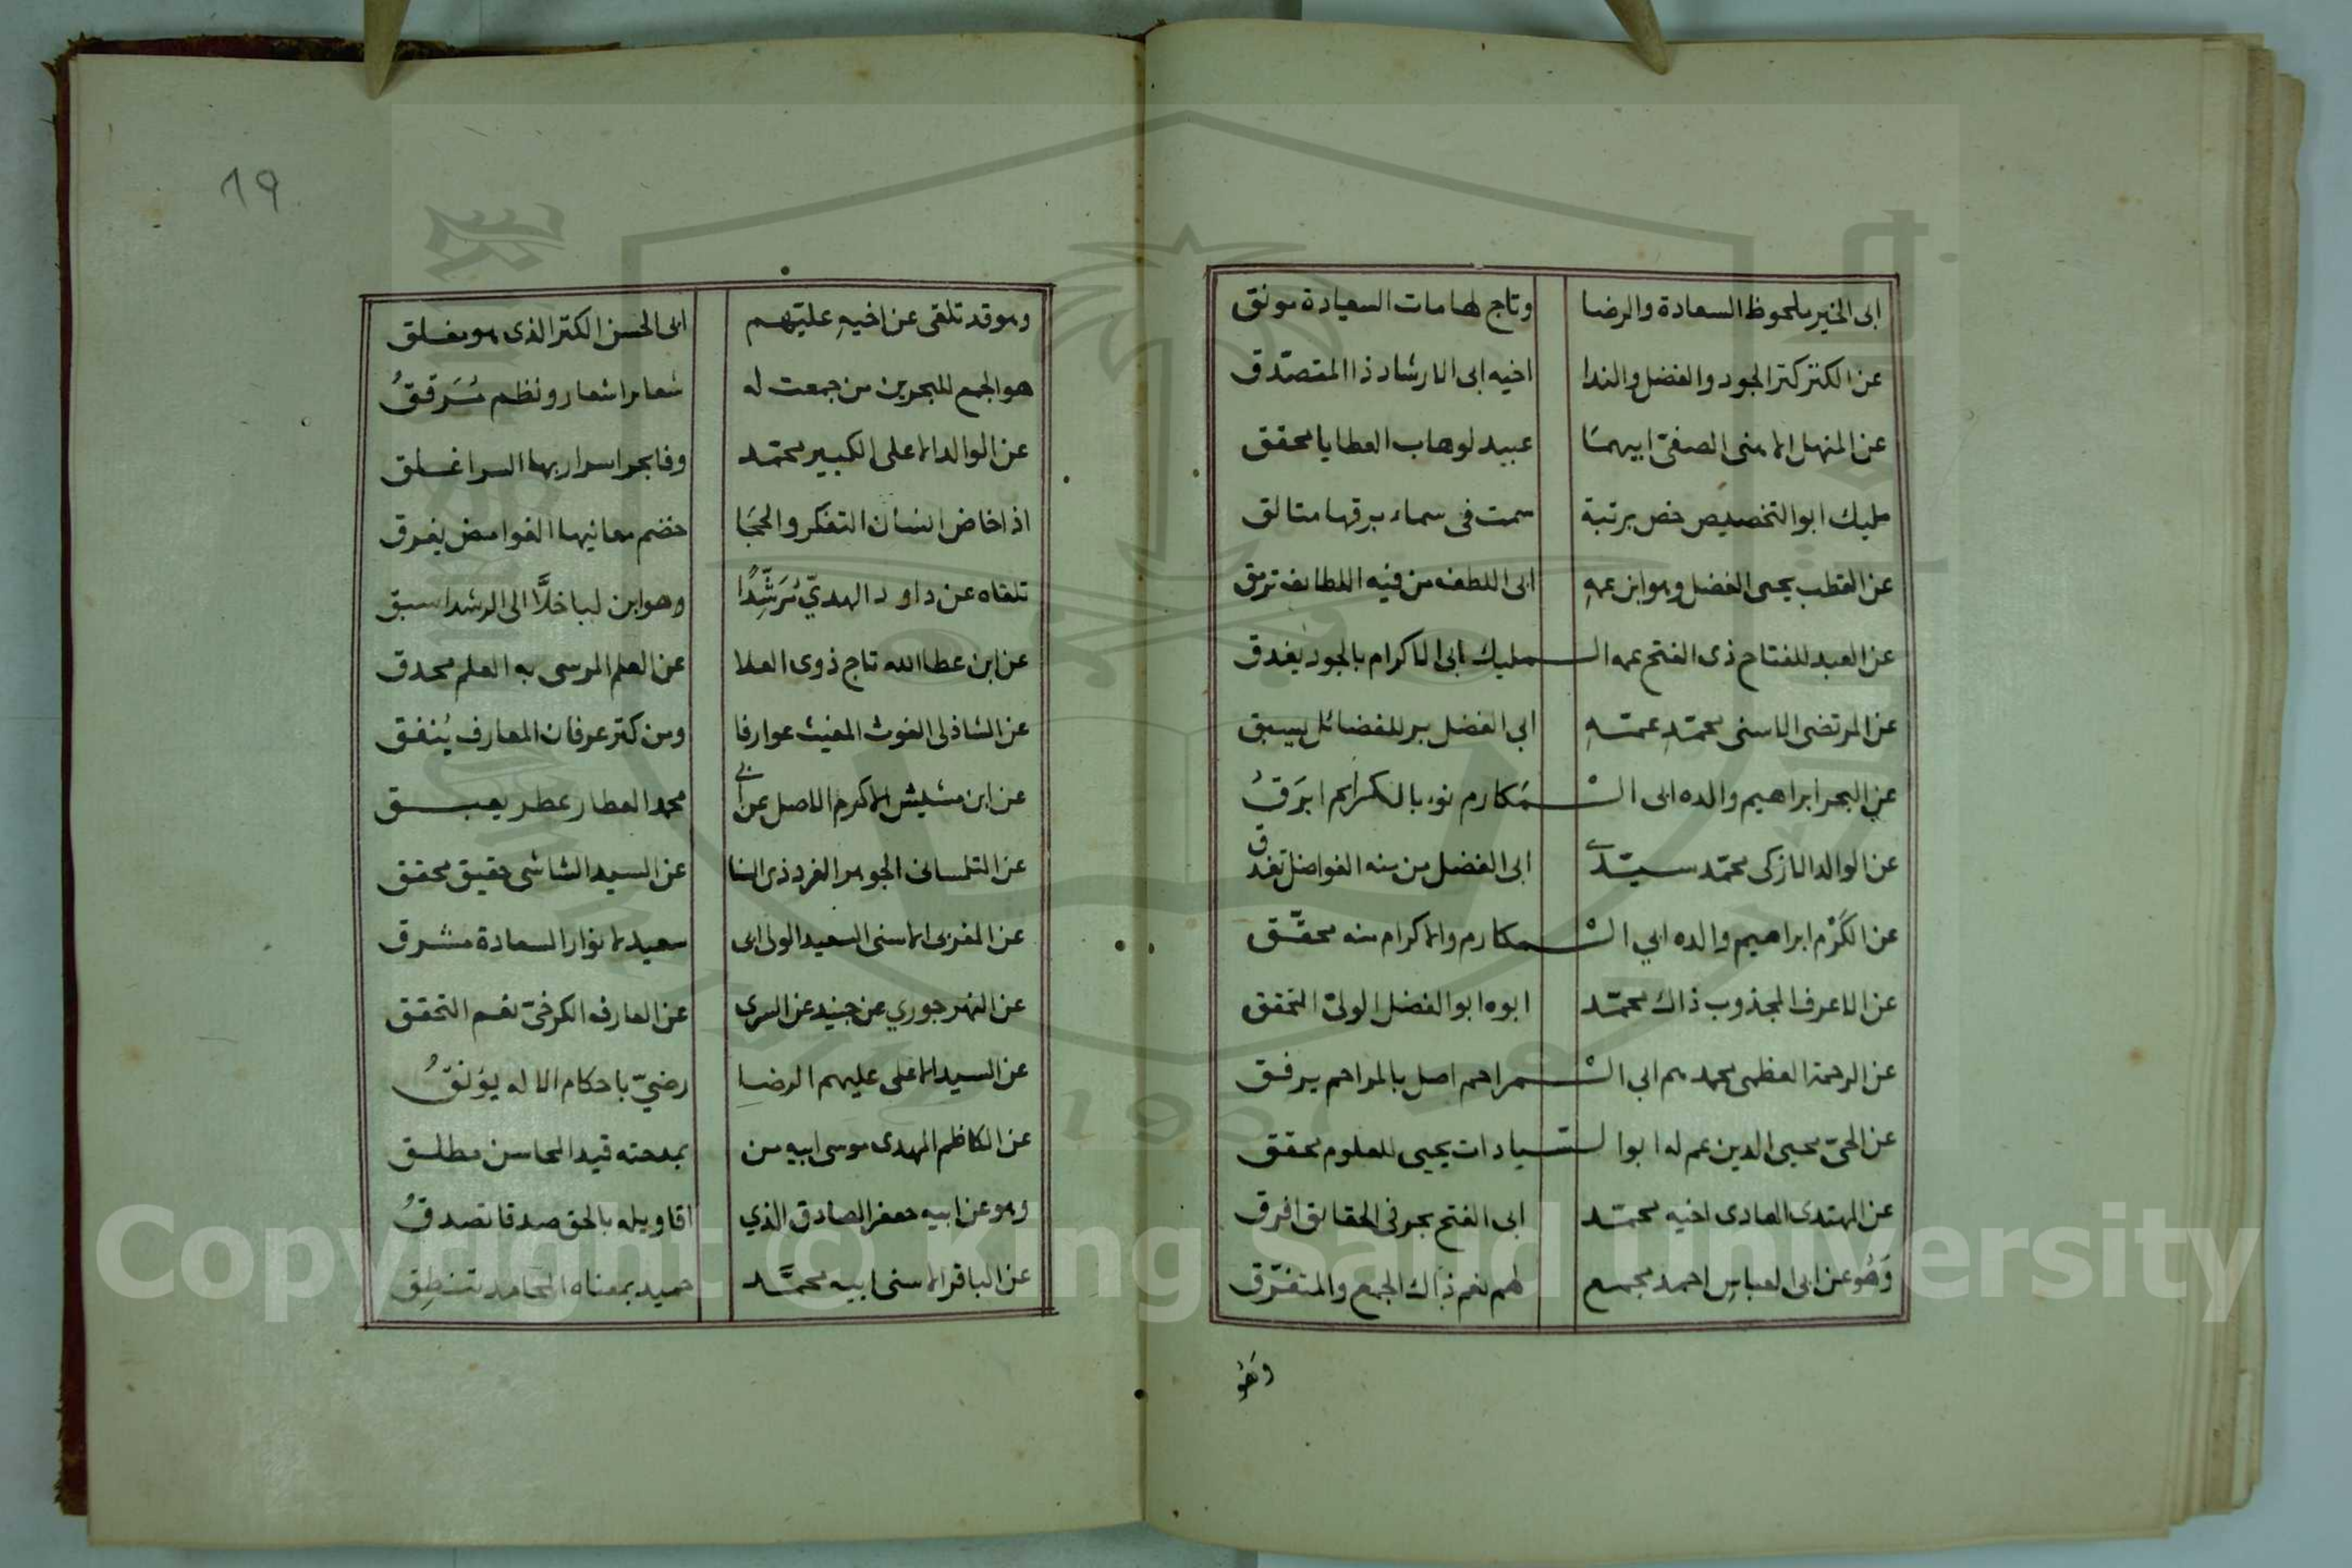 ابى الخير ملحوظ السعادة والرضا وتاج لهامات السيادة مونق
عن الكنز كنز الجود والفضل والندا اخيه ابى الارشاد ذا المتصدق
عن المنهل الاهنى الصفى ابيهما عبيد لوهاب العطايا محقق
مليك ابو التخصيص خص برتبة سمت فى سماء برقها متالق
عن القطب يحيى الفضل وهو ابن عمه ابى اللطف من فيه اللطائف ترمق
عن العبد للفتاح ذى الفتح عمه الـ ـمليك ابى الاكرام بالجود يغدق
عن المرتضى الاسنى محمد عمه ابي الفضل بر للفضائل يسبق
عن البحر ابراهيم والده ابى الـ ـمَكارم نوء بالمكارم ابرَقُ
عن الوالد الازكى محمد سيدى ابى الفضل من منه الفواضل تغدق
عن الكَرْم ابراهيم والده ابي الـ ـمكارم والاكرام منه محقّق
عن الاعرف المجذوب ذاك محمّد ابوه ابو الفضل الولىّ المحقق
عن الرحمة العظمى محمدهم ابى الـ ـمراحم اصل بالمراحم يرفق
عن الحىّ محيى الدين عم له ابو الـ ـسيادات يحيى للعلوم محقق
عن المهتدى الهادى اخيه محمّد ابى الفتح بحر فى الحقائق افرق
وَهُو عن ابى العباسِ احمد مجمع لهم نعم ذاك الجمع والمتفرّق
وَهُو
19
وهو قد تلقى عن اخيهِ عليّهم ابى الحسن الكنز الذى هو مغلق
هو الجمع للبحرين من جمعت له شعائر اشعار ونظم مُسَرقَقُ
عن الوالد الاعلى الكبير محمّد وفا بحر اسرار بها السر اغلق
اذا خاض انسان التفكر والحجَا خضم معانيها الغوامض يغرق
تلقاه عن داود الهديّ مُرَشّدًا وهو ابن لباخلَّا الى الرشد اسبق
عن ابن عطا الله تاج ذوى العلا عن العلم المرسى به العلم محدق
عن الشاذلى الغوث المغيث عوارفا ومن كنز عرفان المعارف يُنفق
عن ابن مشيش الاكرم الاصل عن ابي محمد العطار عطر يعبق
عن التلمسانى الجوهر الفرد ذى السنا عن السيد الشاشى حقيق محقق
عن المغربى الاسنى السعيد الولى ابى سعيد لانوار السعادة مشرق
عن النهرجوري عن جنيد عن السرى عن العارف الكرخىّ نعم المحقق
عن السيد الاعلى عليهم الرضا رضىّ باحكام الاله يؤنقُ
عن الكاظم المهدى موسى ابيه من بمدحته قيد المحاسن مطلق
وهو عن ابيه جعفر الصادق الذي اقاويله بالحق صدقا تصدقُ
عن الباقر الاسنى ابيه محمَّد حميد بمعناه المحامد تنطِق
Copyright © King Saud University
1957